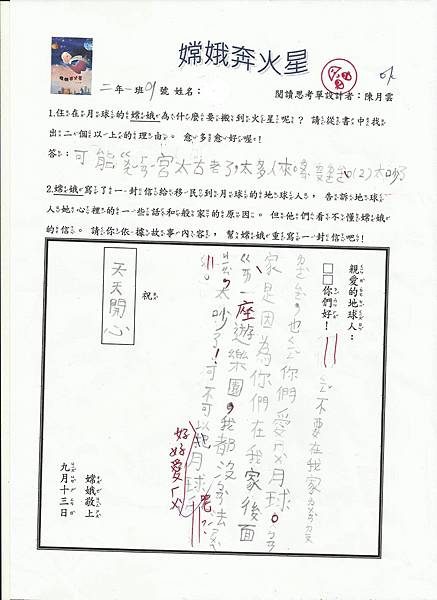 嫦娥奔火星
二年一班01號 姓名：
閱讀思考單設計者：陳月雲
1.住在月球的嫦娥為什麼要搬到火星呢？請從書中找
出二個以上的理由。愈多愈好喔！
答：可能ㄍㄨㄤˇㄏㄢˊ宮太古老了，太多人來
(2)太吵了
2.嫦娥寫了一封信給移民到月球的地球人，告訴地球
人她心裡的一些話和搬家的原因。但他們看不懂嫦娥
的信。請你依據故事內容，幫嫦娥重寫一封信吧！
親愛的地球人：
你們好！
不要在我家
也 你們愛ㄏㄨˋ月球。
家是因為你們在我家後面
ㄍㄞˋ座遊樂園，我都沒 法
太吵了！可不可以把月球
好好愛ㄏㄨˋ
祝
天天開心
嫦娥敬上
九月十三日